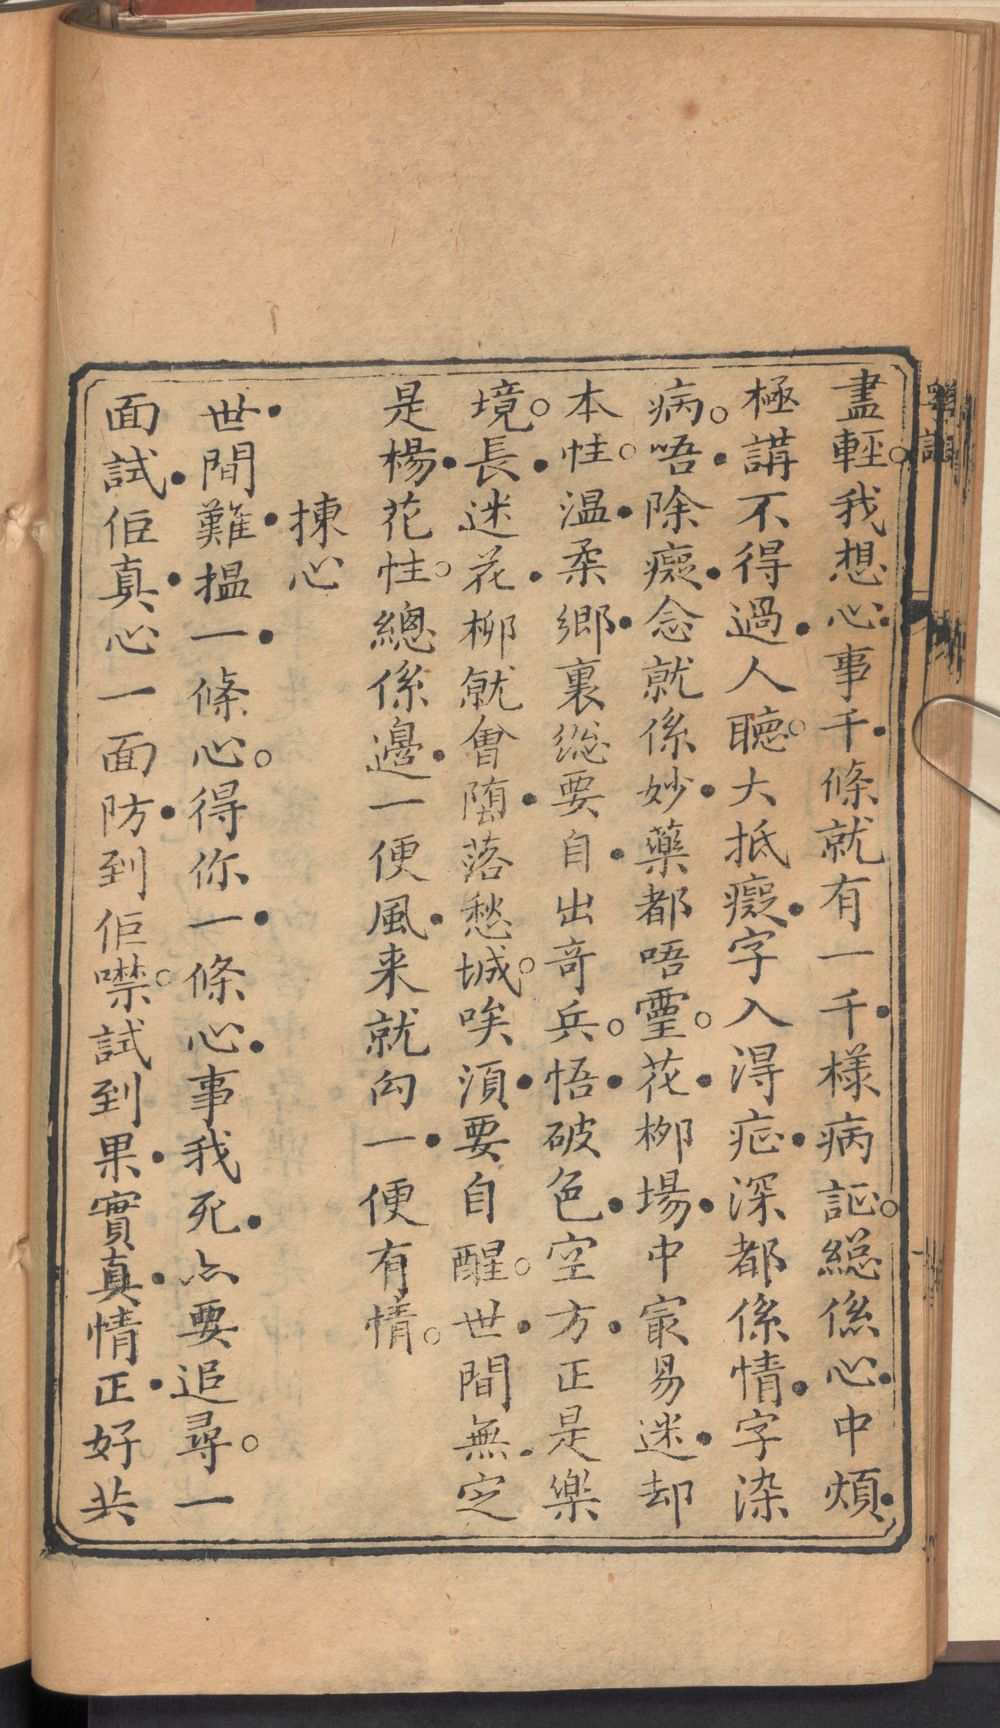 盡輕。我想心事千條就有一千樣病証。總係心中煩
極講不得過人聽。大抵癡字入得症深都係情字染
病。唔除癡念就係妙藥都唔靈。花柳塲中最易迷却
本性。温柔鄉裏総要自出奇兵。悟破色空方正是樂
境。長迷花柳就會墮落愁城。唉須要自醒。世間無定
是楊花性。總係邊一便風来就向一便有情。
揀心
世間難揾一條心。得你一條心事我死亦要追尋。一
面試佢真心一面防到佢噤。試到果實真情正好共